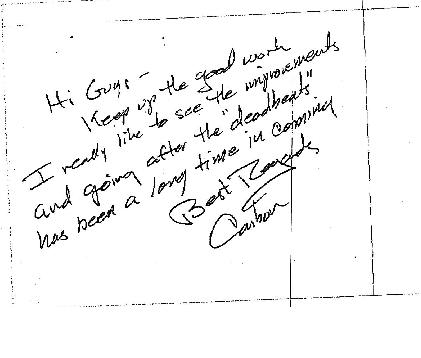 Hi Guys -
Keep up the good work
I really like to see the improvements
and going after the "deadbeats"
has been a long time in comming
Best Regards